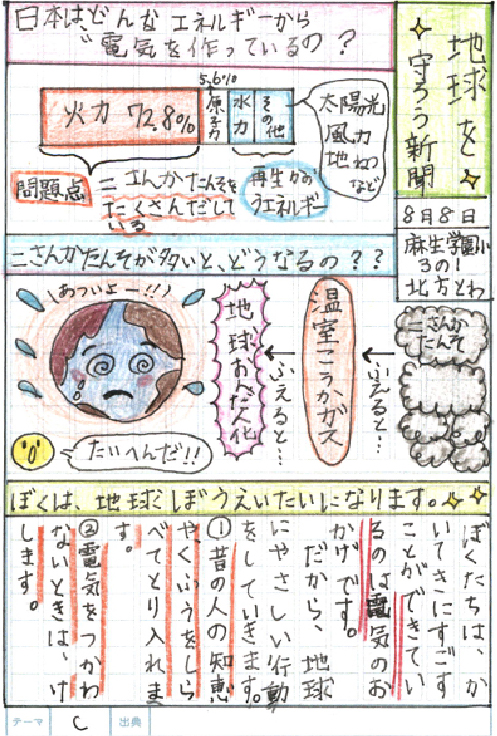 地球を
守ろう新聞
8月8日
麻生学園小
3の1
北方とわ
日本はどんなエネルギーから
電気を作っているの？
火力 72.8%
5.6%
原子力
水力
その他
太陽光
風力
地ねつ
など
問題点
二さんかたんそを
たくさんだして
いる
再生かのう
エネルギー
二さんかたんそが多いと、どうなるの？？
二さんか
たんそ
ふえると…
温室こうかガス
ふえると…
地球おんだん化
(あついよー!!)
たいへんだ!!
ぼくは、地球ぼうえいたいになります。
ぼくたちは、か
いてきにすごす
ことができてい
るのは電気のお
かげです。
だから、地球
にやさしい行動
をしていきます。
①昔の人の知恵
や、くふうをしら
べてとり入れま
す。
②電気をつかわ
ないときは、け
します。
テーマ
C
出典